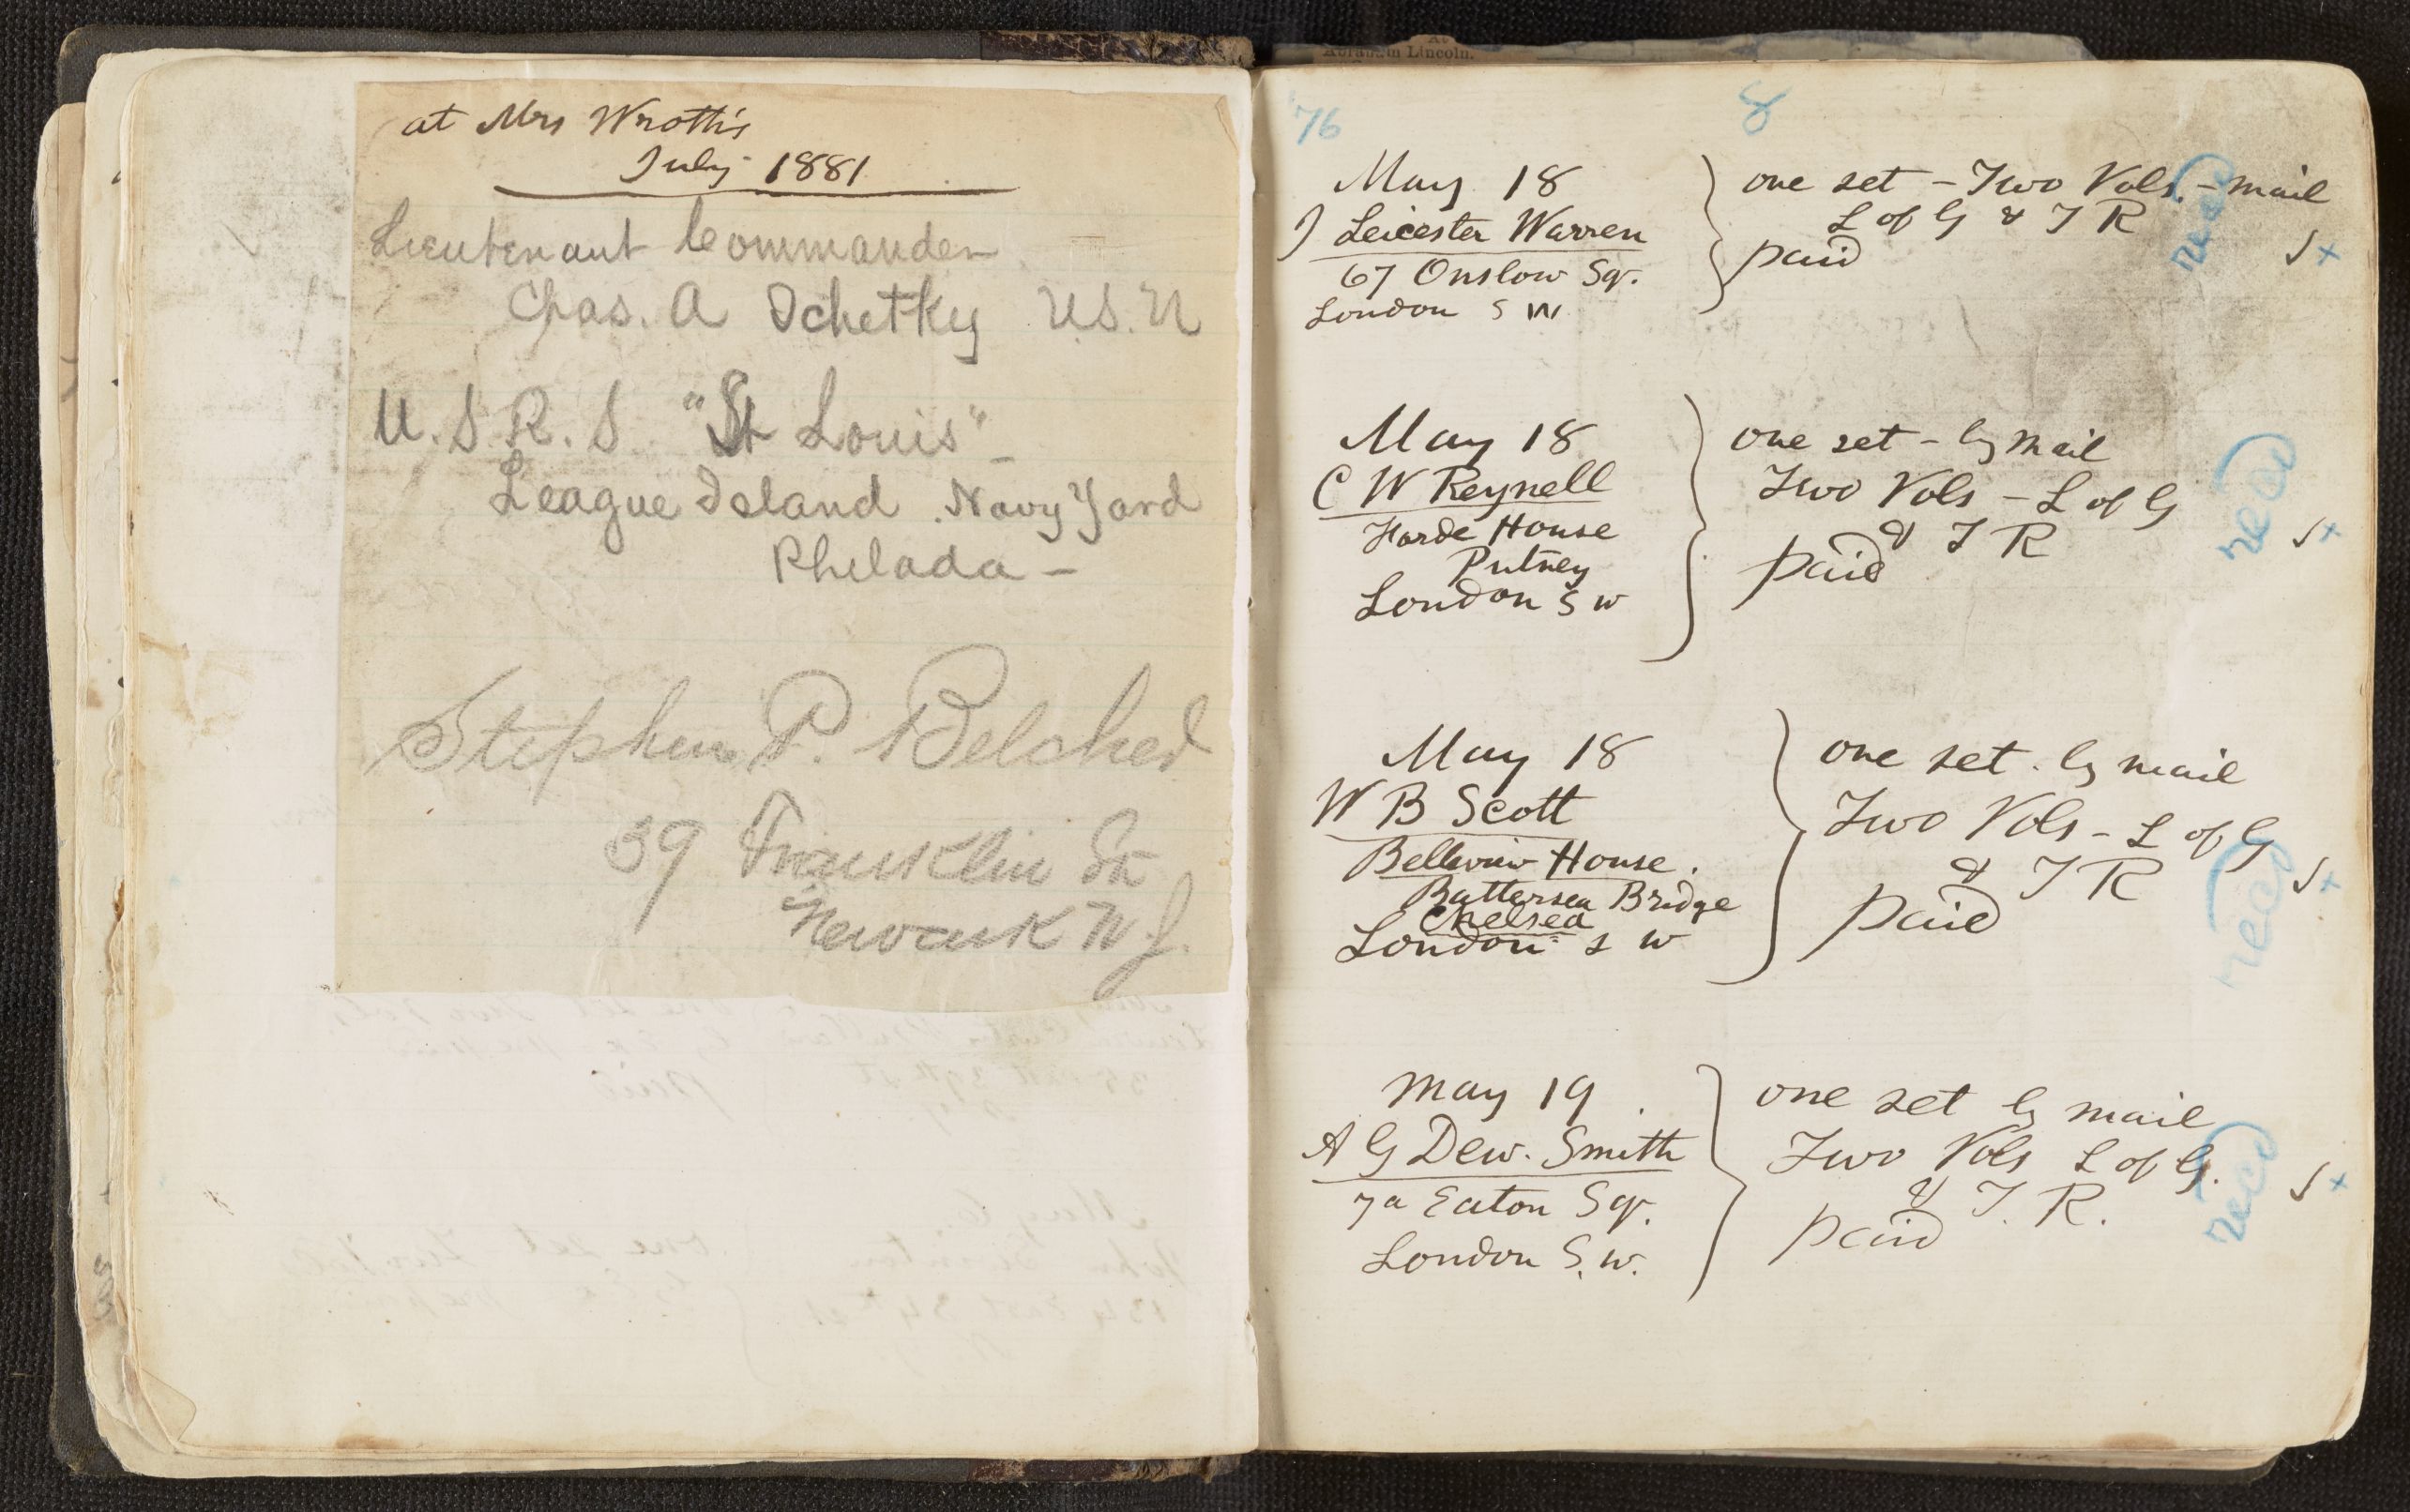 at Mrs Wroth's
July 1881
Lieutenant Commander
Chas. A Schetky U.S.N
U.S.R.S "St Louis"
League Island Navy Yard
Philada –
Stephen P. Belcher
39 Franklin St
Newark N.J.
Abraham Lincoln.
76 8
May 18
J Leicester Warren
67 Onslow Sq.
London S W
one set – Two Vols. – mail
L of G & T R
paid
rec'd
May 18
C W Reynell
Forde House
Putney
London S W
one set – by mail
Two Vols – L of G
& T R
paid
rec'd
May 18
W B Scott
Bellevue House.
Battersea Bridge
Chelsea
London S W
one set. by mail
Two Vols – L of G
& T R
paid
rec'd
May 19
A G Dew. Smith
7a Eaton Sq.
London S. W.
one set by mail
Two Vols L of G.
& T. R.
paid
rec'd